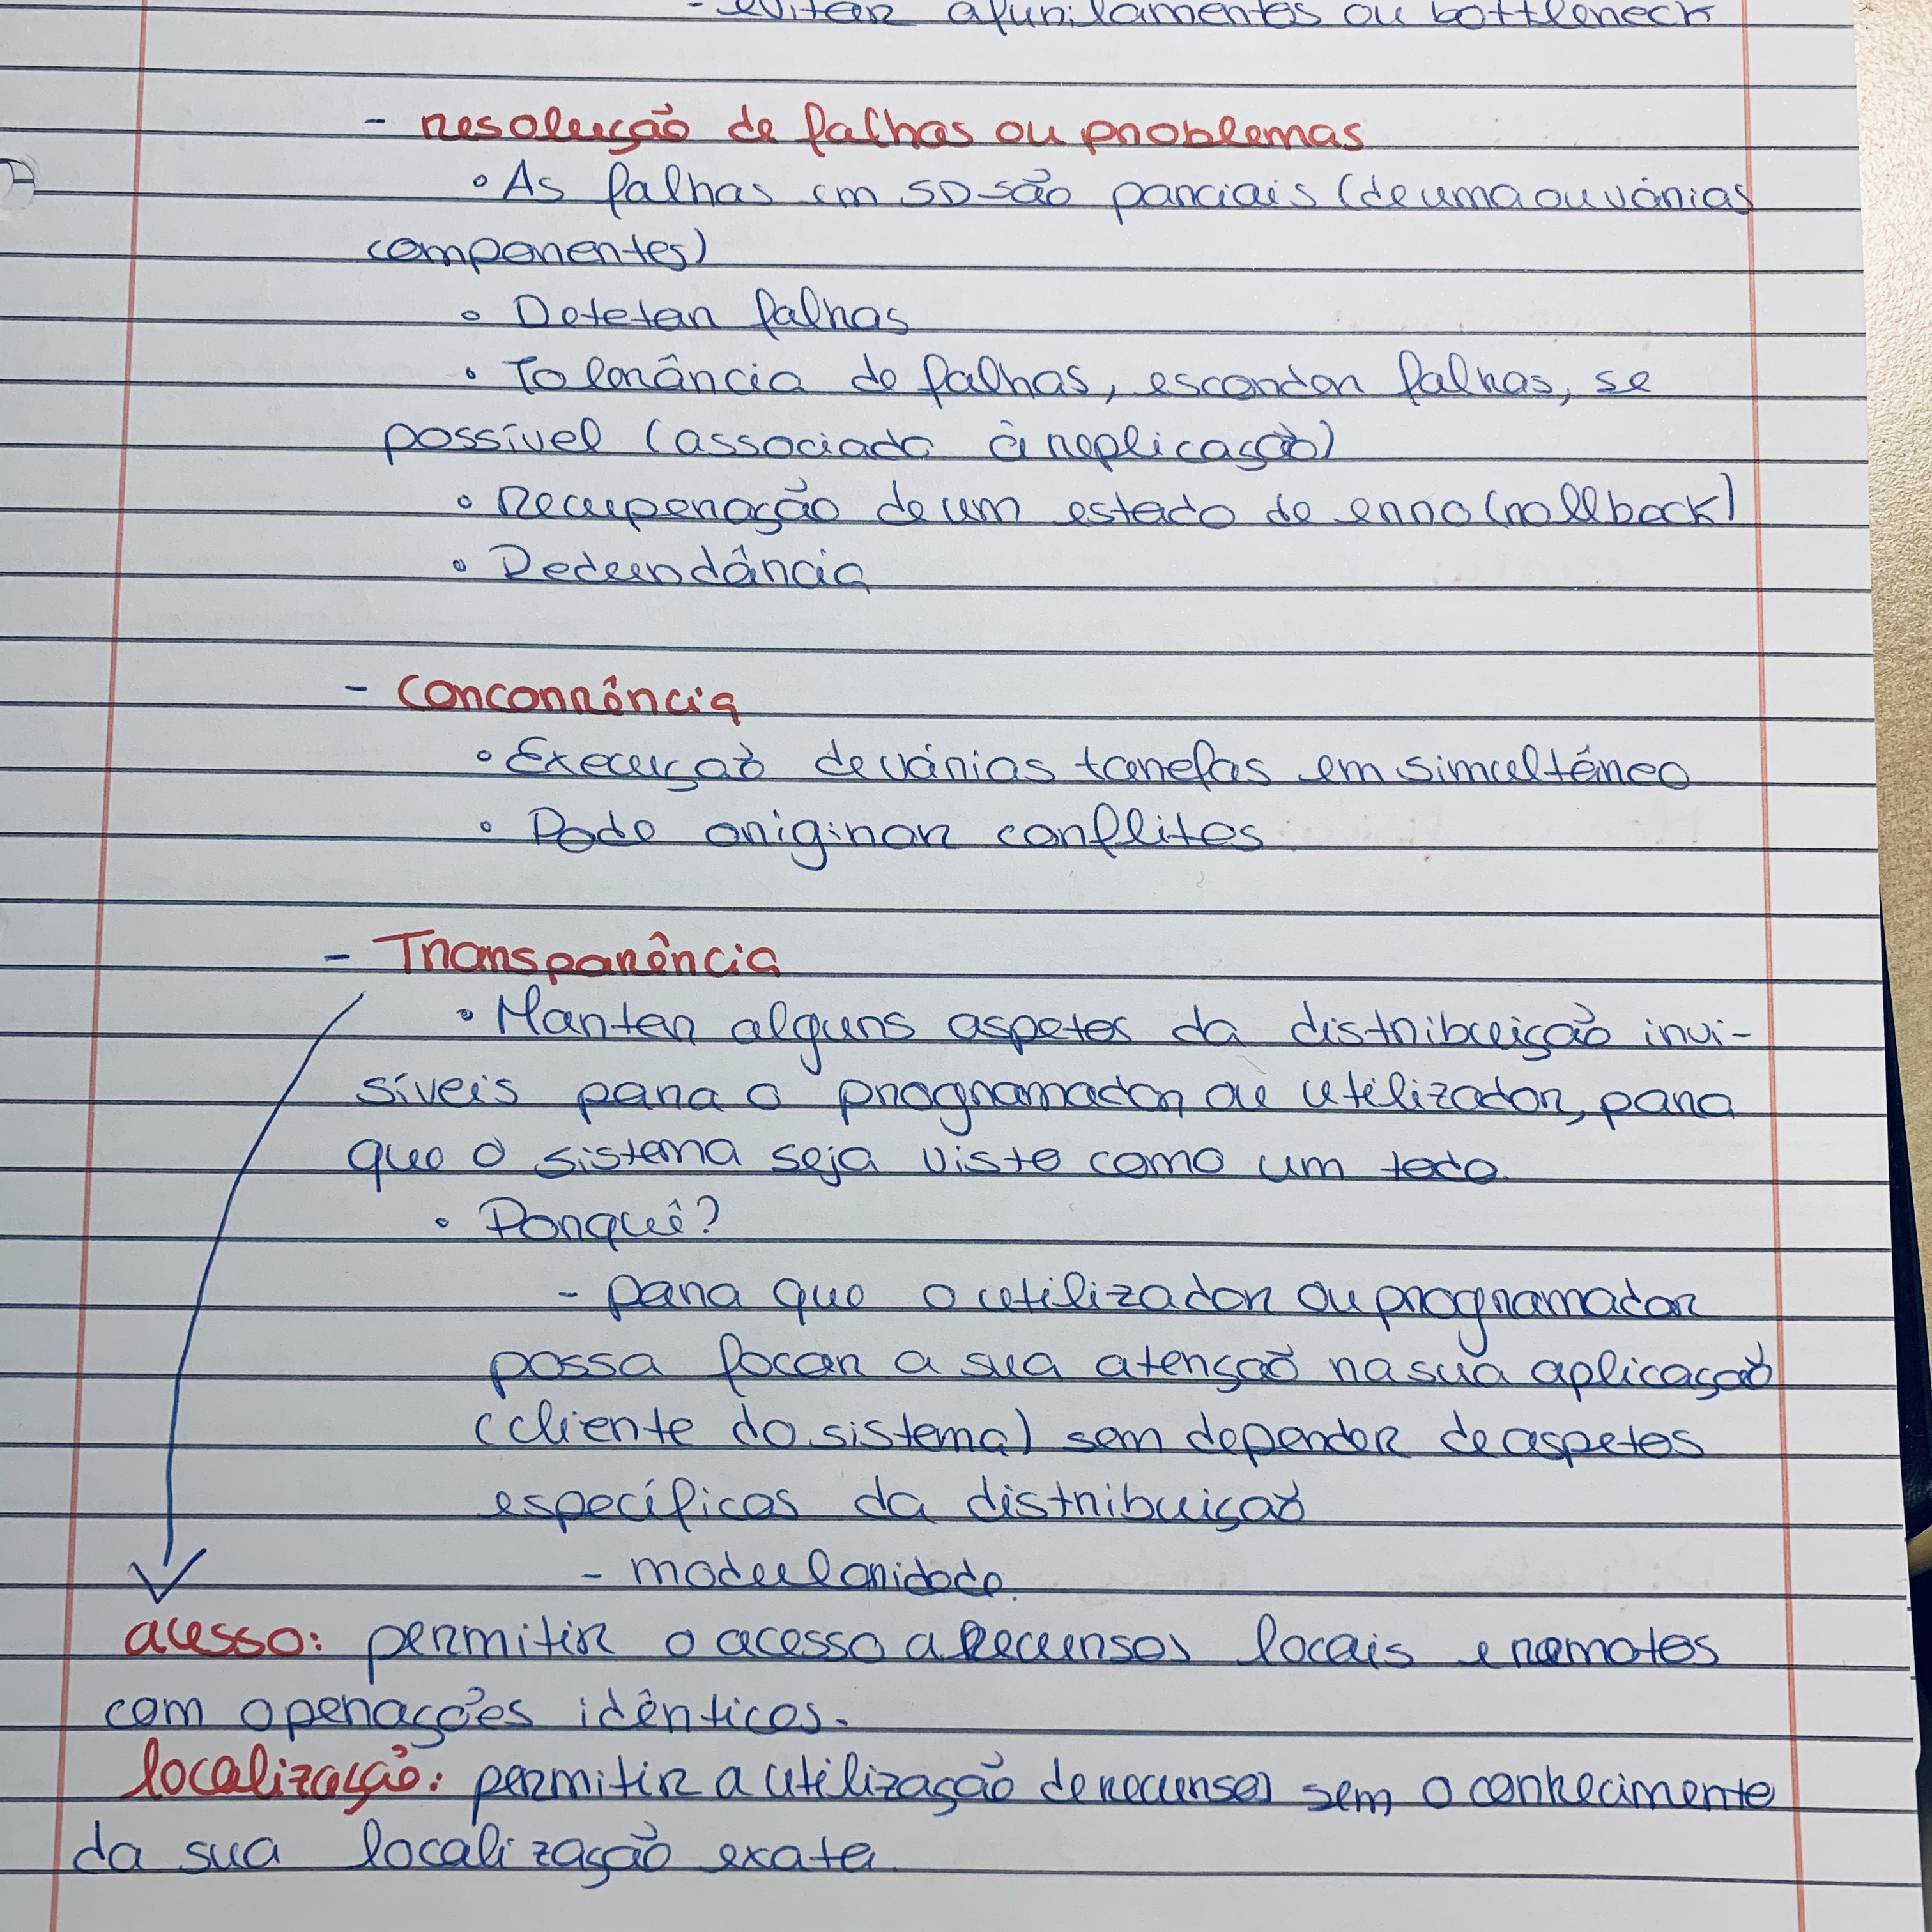 - evitar afunilamentos ou bottleneck
- resolução de falhas ou problemas
• As falhas em SD são parciais (de uma ou várias
componentes)
• Detetar falhas
• Tolerância de falhas, esconder falhas, se
possível (associado à replicação)
• Recuperação de um estado de erro (rollback)
• Redundância
- Concorrência
• Execução de várias tarefas em simultâneo
• Pode originar conflitos
- Transparência
• Manter alguns aspetos da distribuição invi-
síveis para o programador ou utilizador, para
que o sistema seja visto como um todo.
• Porquê?
- para que o utilizador ou programador
possa focar a sua atenção na sua aplicação
(cliente do sistema) sem depender de aspetos
específicos da distribuição
- modularidade.
acesso: permitir o acesso a recursos locais e remotos
com operações idênticas.
localização: permitir a utilização de recursos sem o conhecimento
da sua localização exata.